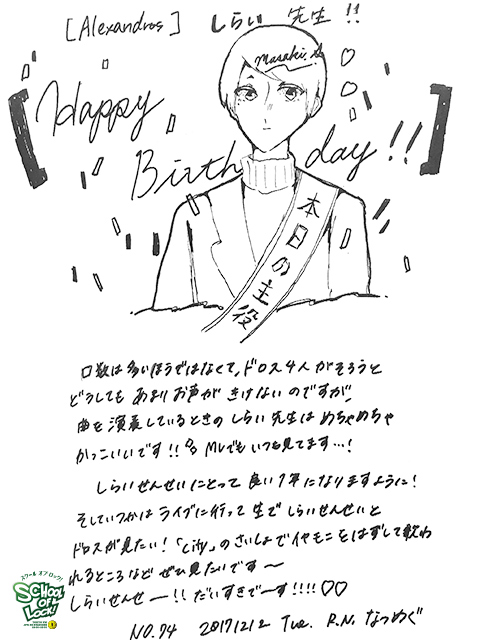 [Alexandros] しらい 先生 !!
Masaki
Happy
Birthday!!
本日の主役
口数は多いほうではなくて、ドロス4人がそろうと
どうしても あまり お声が きけない のですが、
曲を 演奏しているときの しらい 先生は めちゃめちゃ
かっこいいです!! MVでも いつも見てます…!
しらいせんせいにとって 良い1年になりますように!
そしていつかは ライブに行って 生で しらいせんせいと
ドロスが見たい! 「city」の さいしょで イヤモニを はずして 歌わ
れるところなど ぜひ見たいです〜
しらいせんせー!! だいすきでーす!!!! ♡♡
NO.74 2017.12.12 Tue. R.N. なつめぐ
スクール オブ ロック!
SCHOOL OF LOCK!